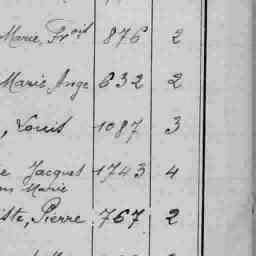 Marie, Frçois 876 2
Marie Ange 632 2
, Louis 1087 3
Jacques 1743 4
Marie
Pierre 767 2